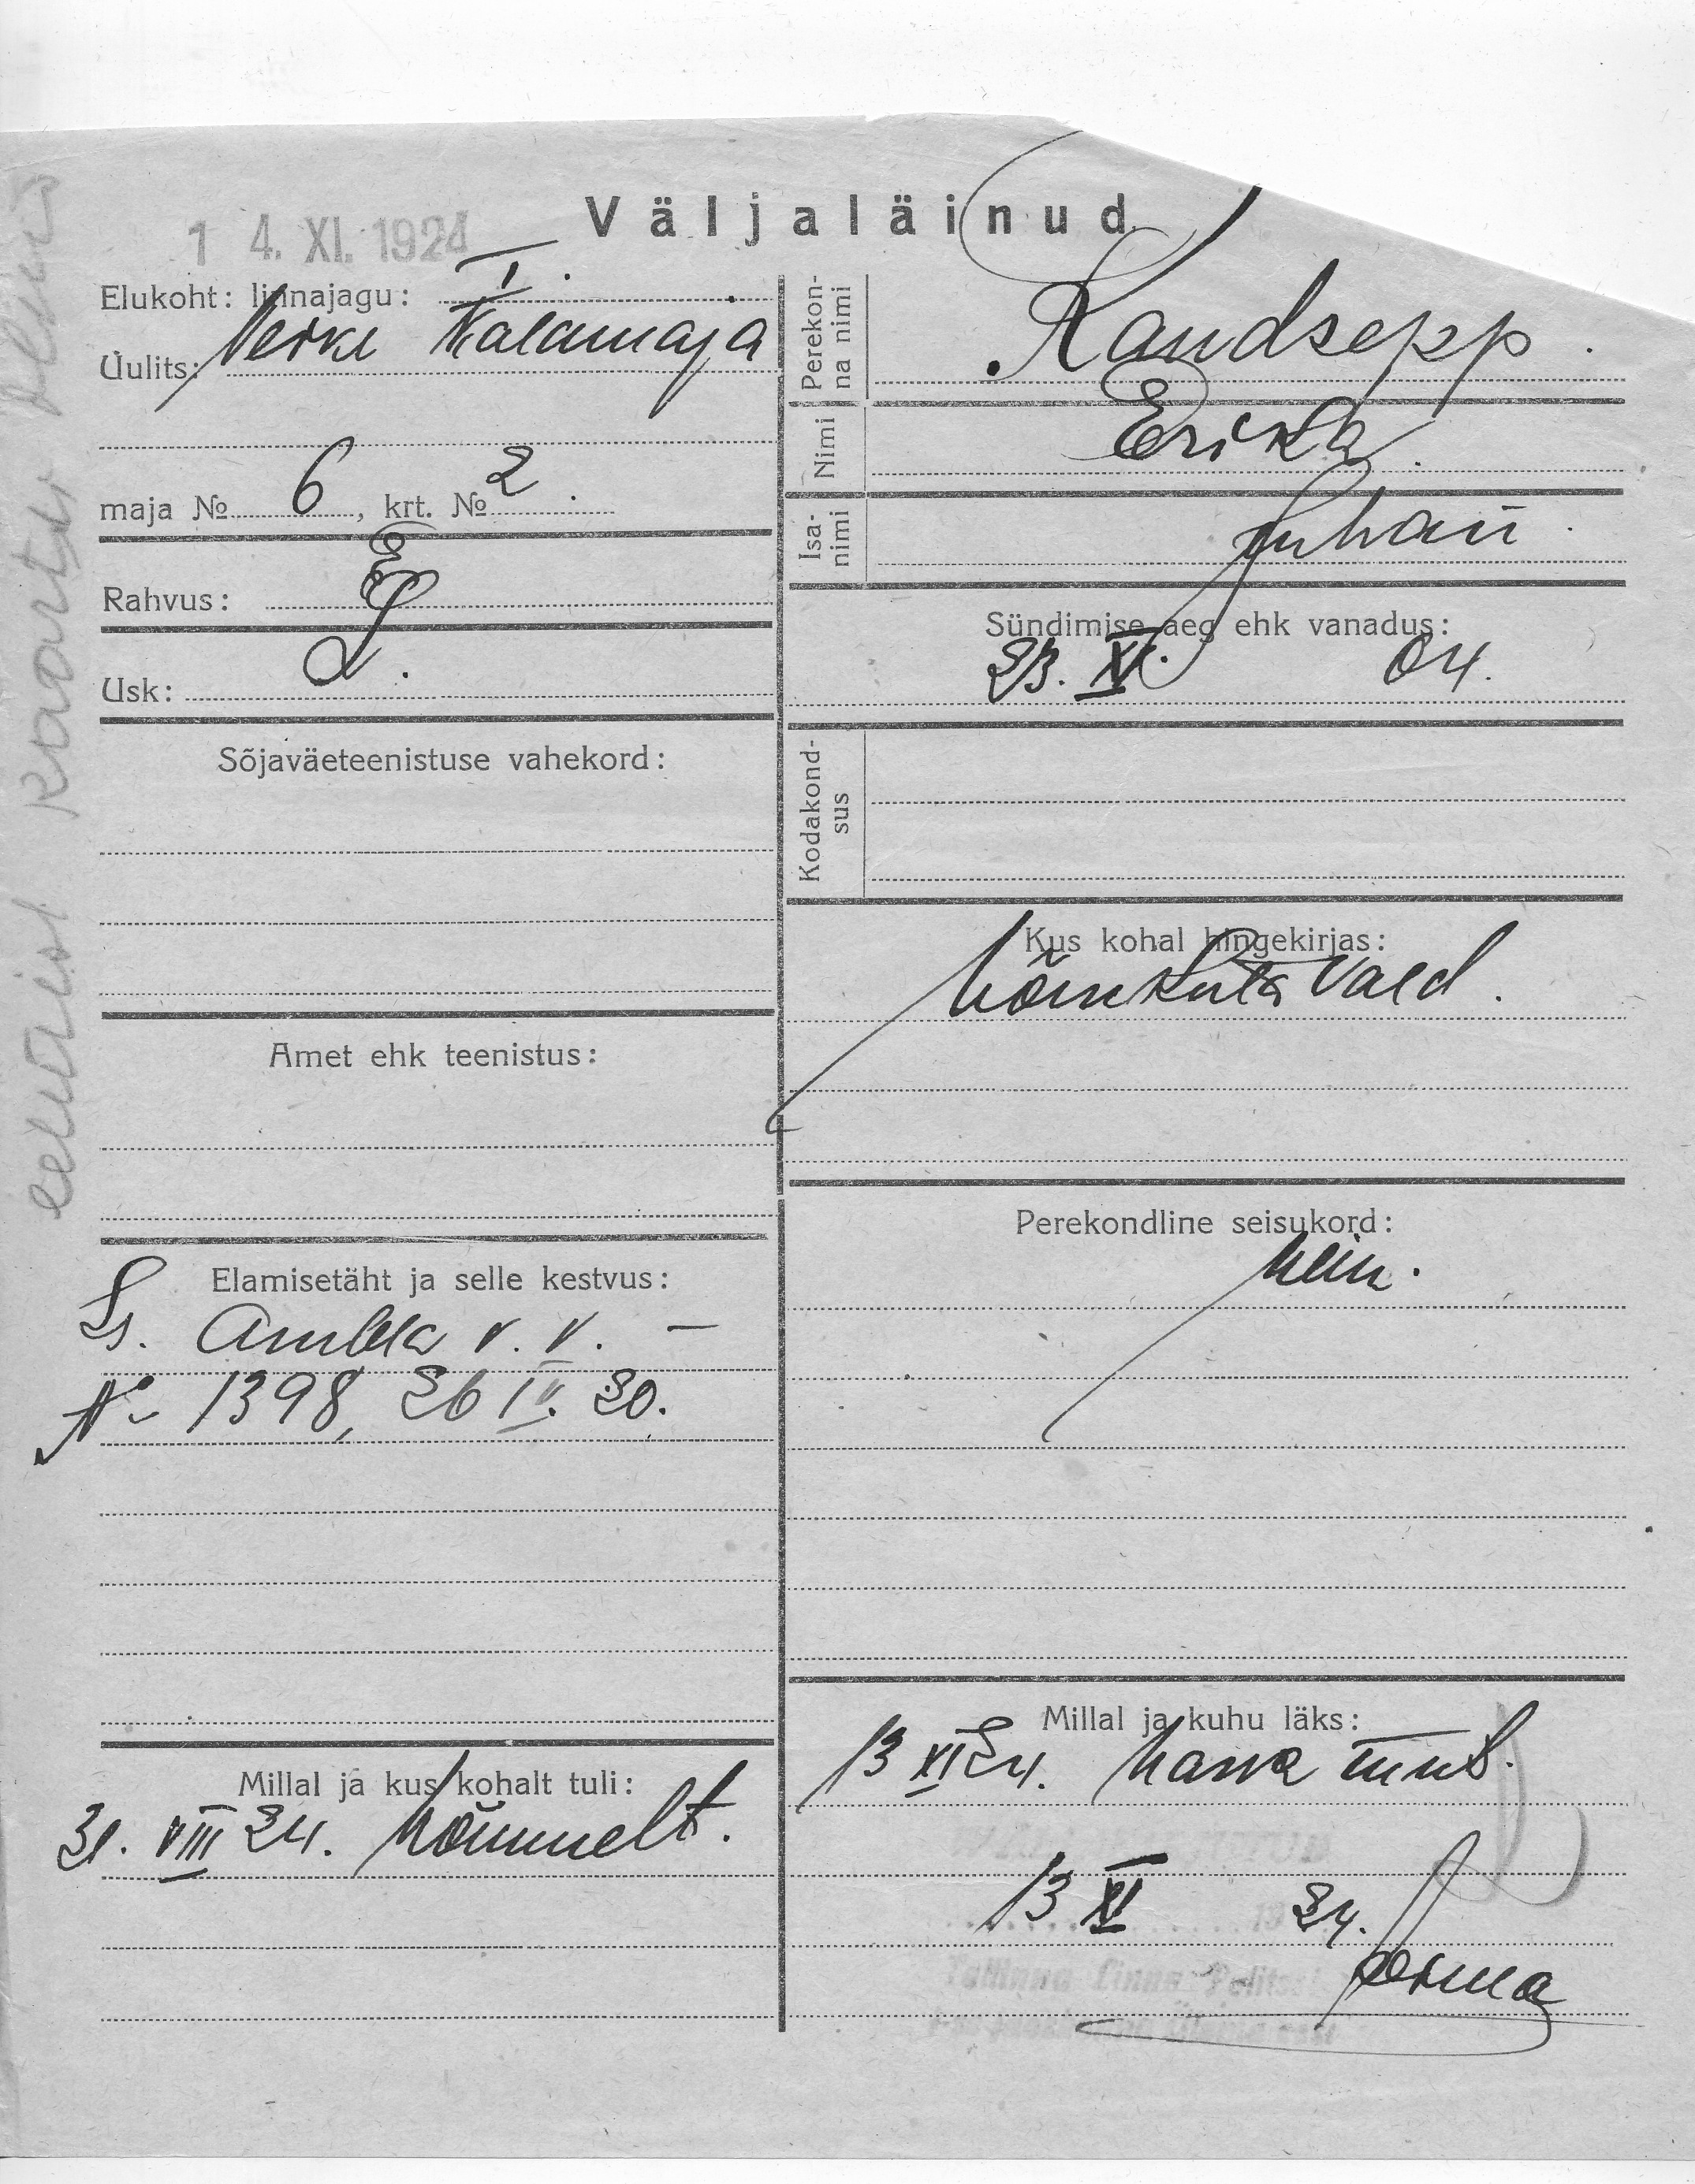 Väljaläinud
14. XI. 1924
Elukoht: linnajagu: I.
Üulits: Veike Kalamaja
maja № 6, krt. № 2.
Rahvus: E
Usk: L.
Sõjaväeteenistuse vahekord:
Amet ehk teenistus:
Elamisetäht ja selle kestvus:
Is. Ambla v. v. –
№ 1398, 26 IV. 20.
Millal ja kus kohalt tuli:
31. VIII 24. Nõmmelt.
Perekonna nimi
Randsepp.
Nimi
Erika.
Isanimi
Juhan.
Sündimise aeg ehk vanadus:
23. XI. 04.
Kodakondsus
Kus kohal hingekirjas:
vald.
Perekondline seisukord:
Neiu.
Millal ja kuhu läks:
13 XI 24. Narva
13 XI 24.
Tallinna Linna Politsei
kaarte